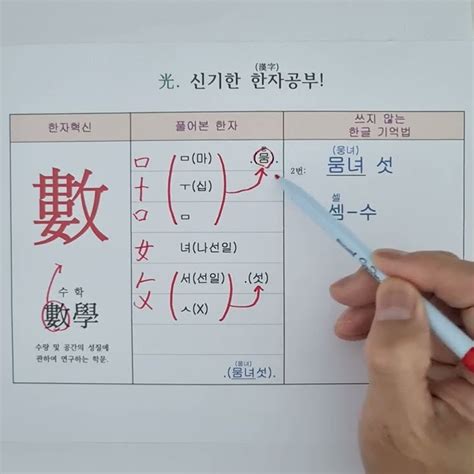 (漢字)
光. 신기한 한자공부!
한자혁신
풀어본 한자
쓰지 않는
한글 기억법
數
수 학
數學
수량 및 공간의 성질에
관하여 연구하는 학문.
口 ㅁ(마) .뭄.
十 ㅜ(십)
口 ㅁ
女 녀(나선일)
서(선일) .(섯)
乂 ㅅ(X)
(뭄녀)
.(뭄녀섯).
(뭄녀)
2번: 뭄녀 섯
셀
셈-수